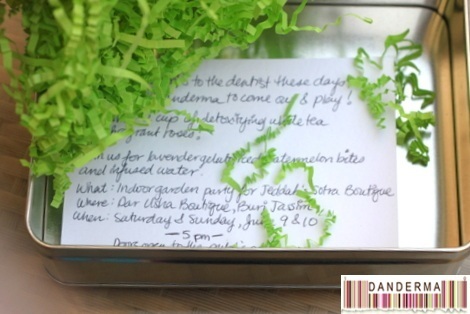 to the dentist these days
to come out & play!
cup of detoxifying white tea
fragrant roses!
us for lavender gelato, iced watermelon bites
and infused water.
What: Indoor garden party for Jeddah's Sotra Boutique
Where: Dar Uisra Boutique, Burj Jassim,
When: Saturday & Sunday, June 9 & 10
— 5 pm —
to the
DANDERMA